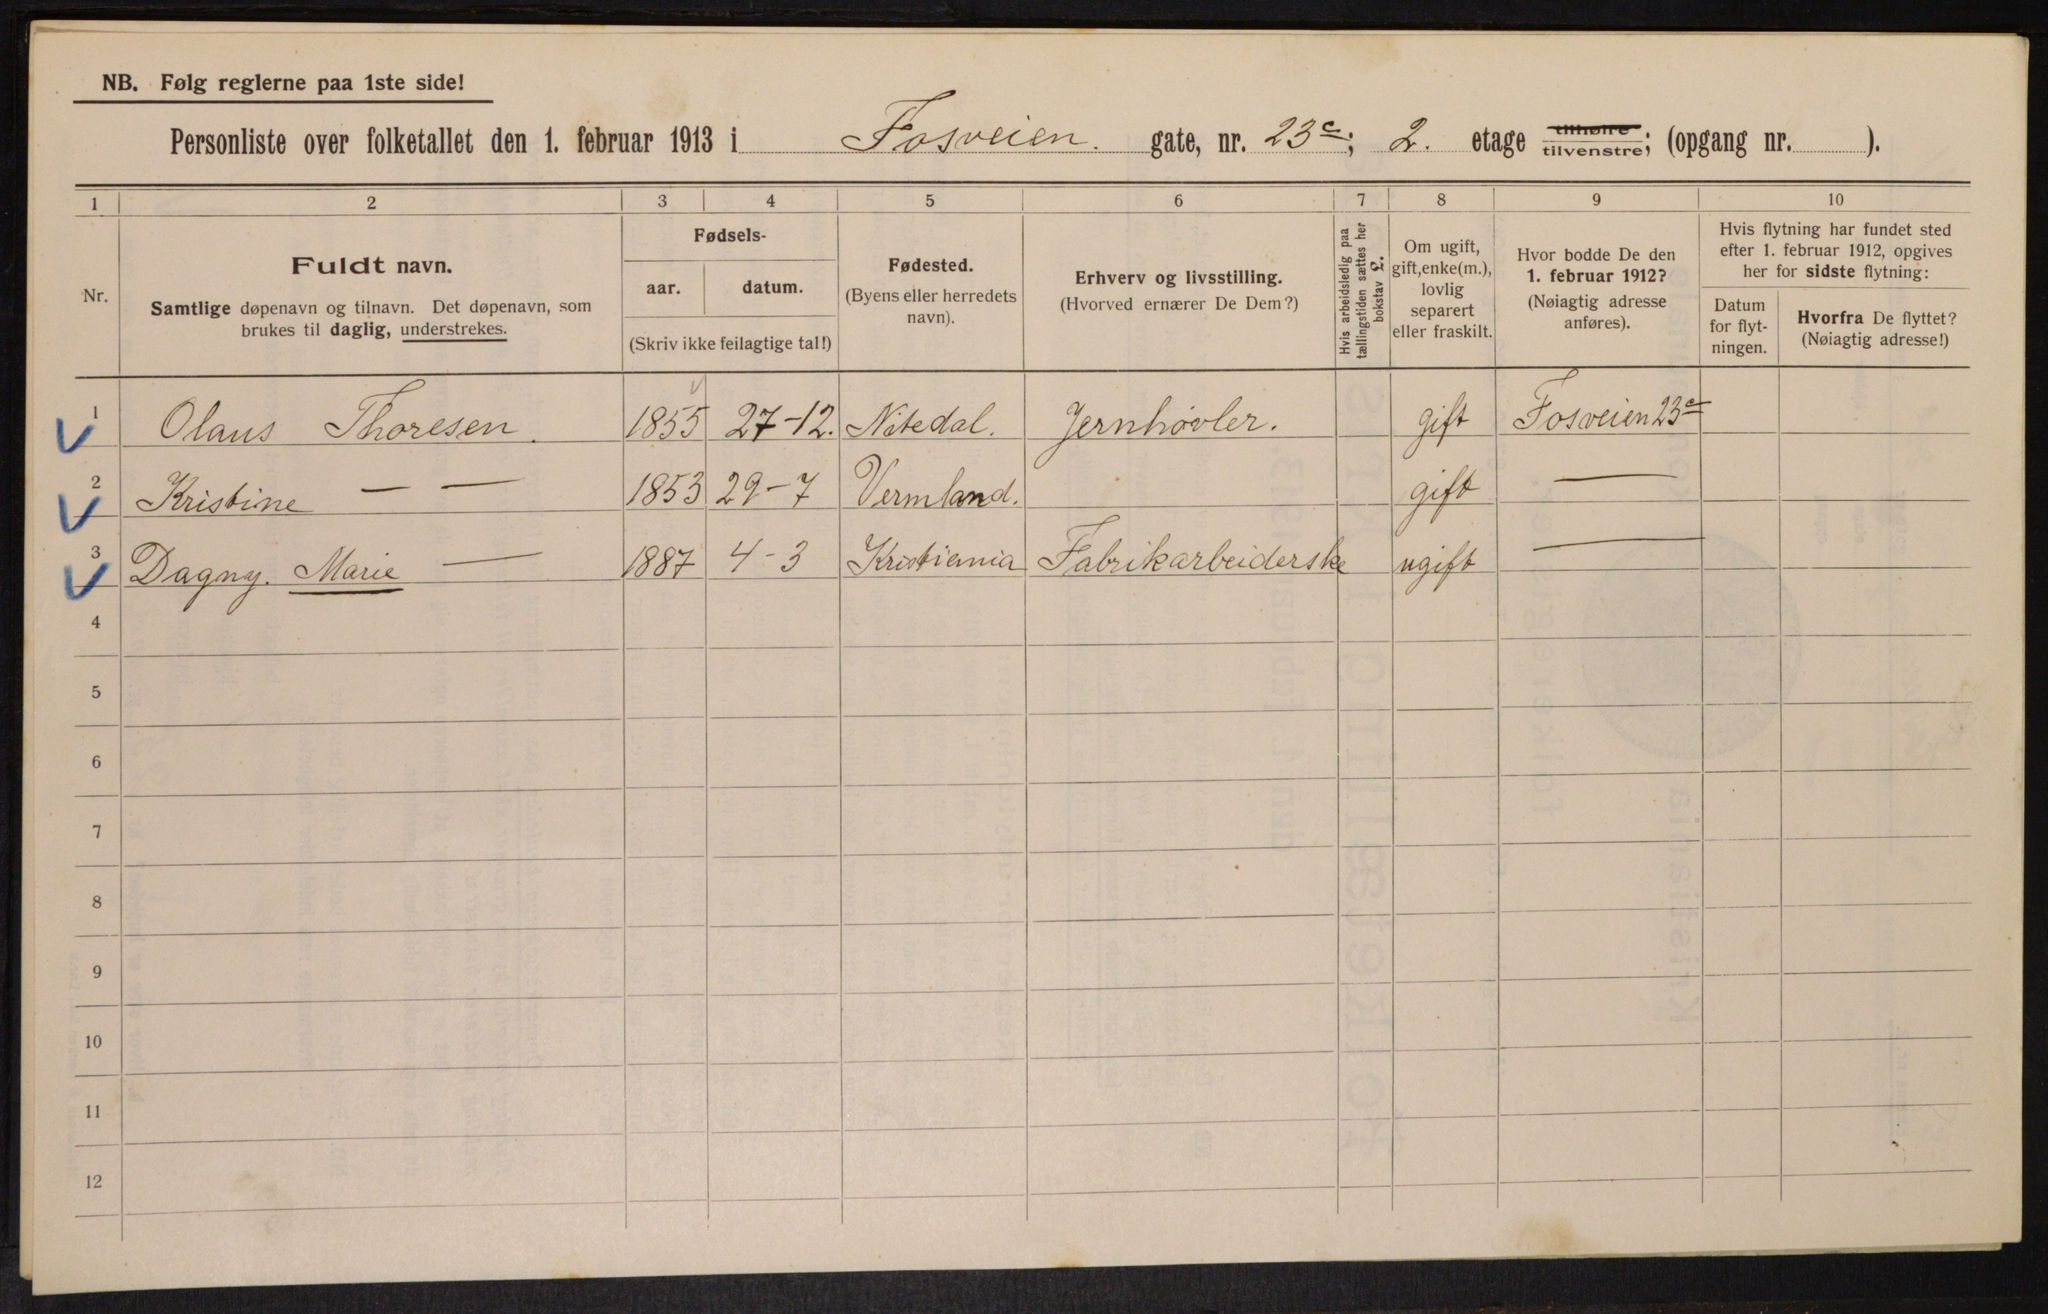 NB. Følg reglerne paa 1ste side!
Personliste over folketallet den 1. februar 1913 i Fosveien. gate, nr. 23c; 2. etage tilhøire tilvenstre; (opgang nr. ).
1 2 3 4 5 6 7 8 9 10
Nr.
Fuldt navn.
Samtlige døpenavn og tilnavn. Det døpenavn, som
brukes til daglig, understrekes.
Fødsels-
aar. datum.
(Skriv ikke feilagtige tal!)
Fødested.
(Byens eller herredets
navn).
Erhverv og livsstilling.
(Hvorved ernærer De Dem?)
Hvis arbeidsledig paa
tællingstiden sættes her
bokstav L.
Om ugift,
gift, enke(m.),
lovlig
separert
eller fraskilt.
Hvor bodde De den
1. februar 1912?
(Nøiagtig adresse
anføres).
Hvis flytning har fundet sted
efter 1. februar 1912, opgives
her for sidste flytning:
Datum
for flyt-
ningen.
Hvorfra De flyttet?
(Nøiagtig adresse!)
1 Olaus Thoresen. 1855 27-12. Nitedal. Jernhøvler. gift Fosveien 23c
2 Kristine — — 1853 29-7 Vermland. gift —
3 Dagny. Marie — 1887 4-3 Kristiania Fabrikarbeiderske ugift —
4
5
6
7
8
9
10
11
12